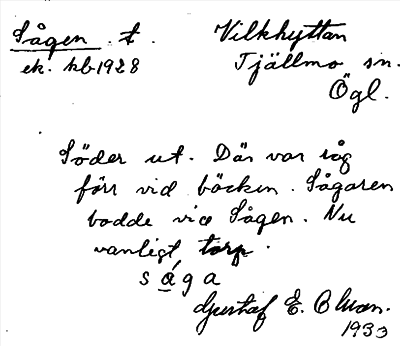 Sågen t. Vilkhyttan
ek. kb 1928 Tjällmo sn.
Ögl.
Söder ut. Där var såg
förr vid bäcken. Sågaren
bodde vid Sågen. Nu
vanligt torp.
sága
Gustaf E.
1933